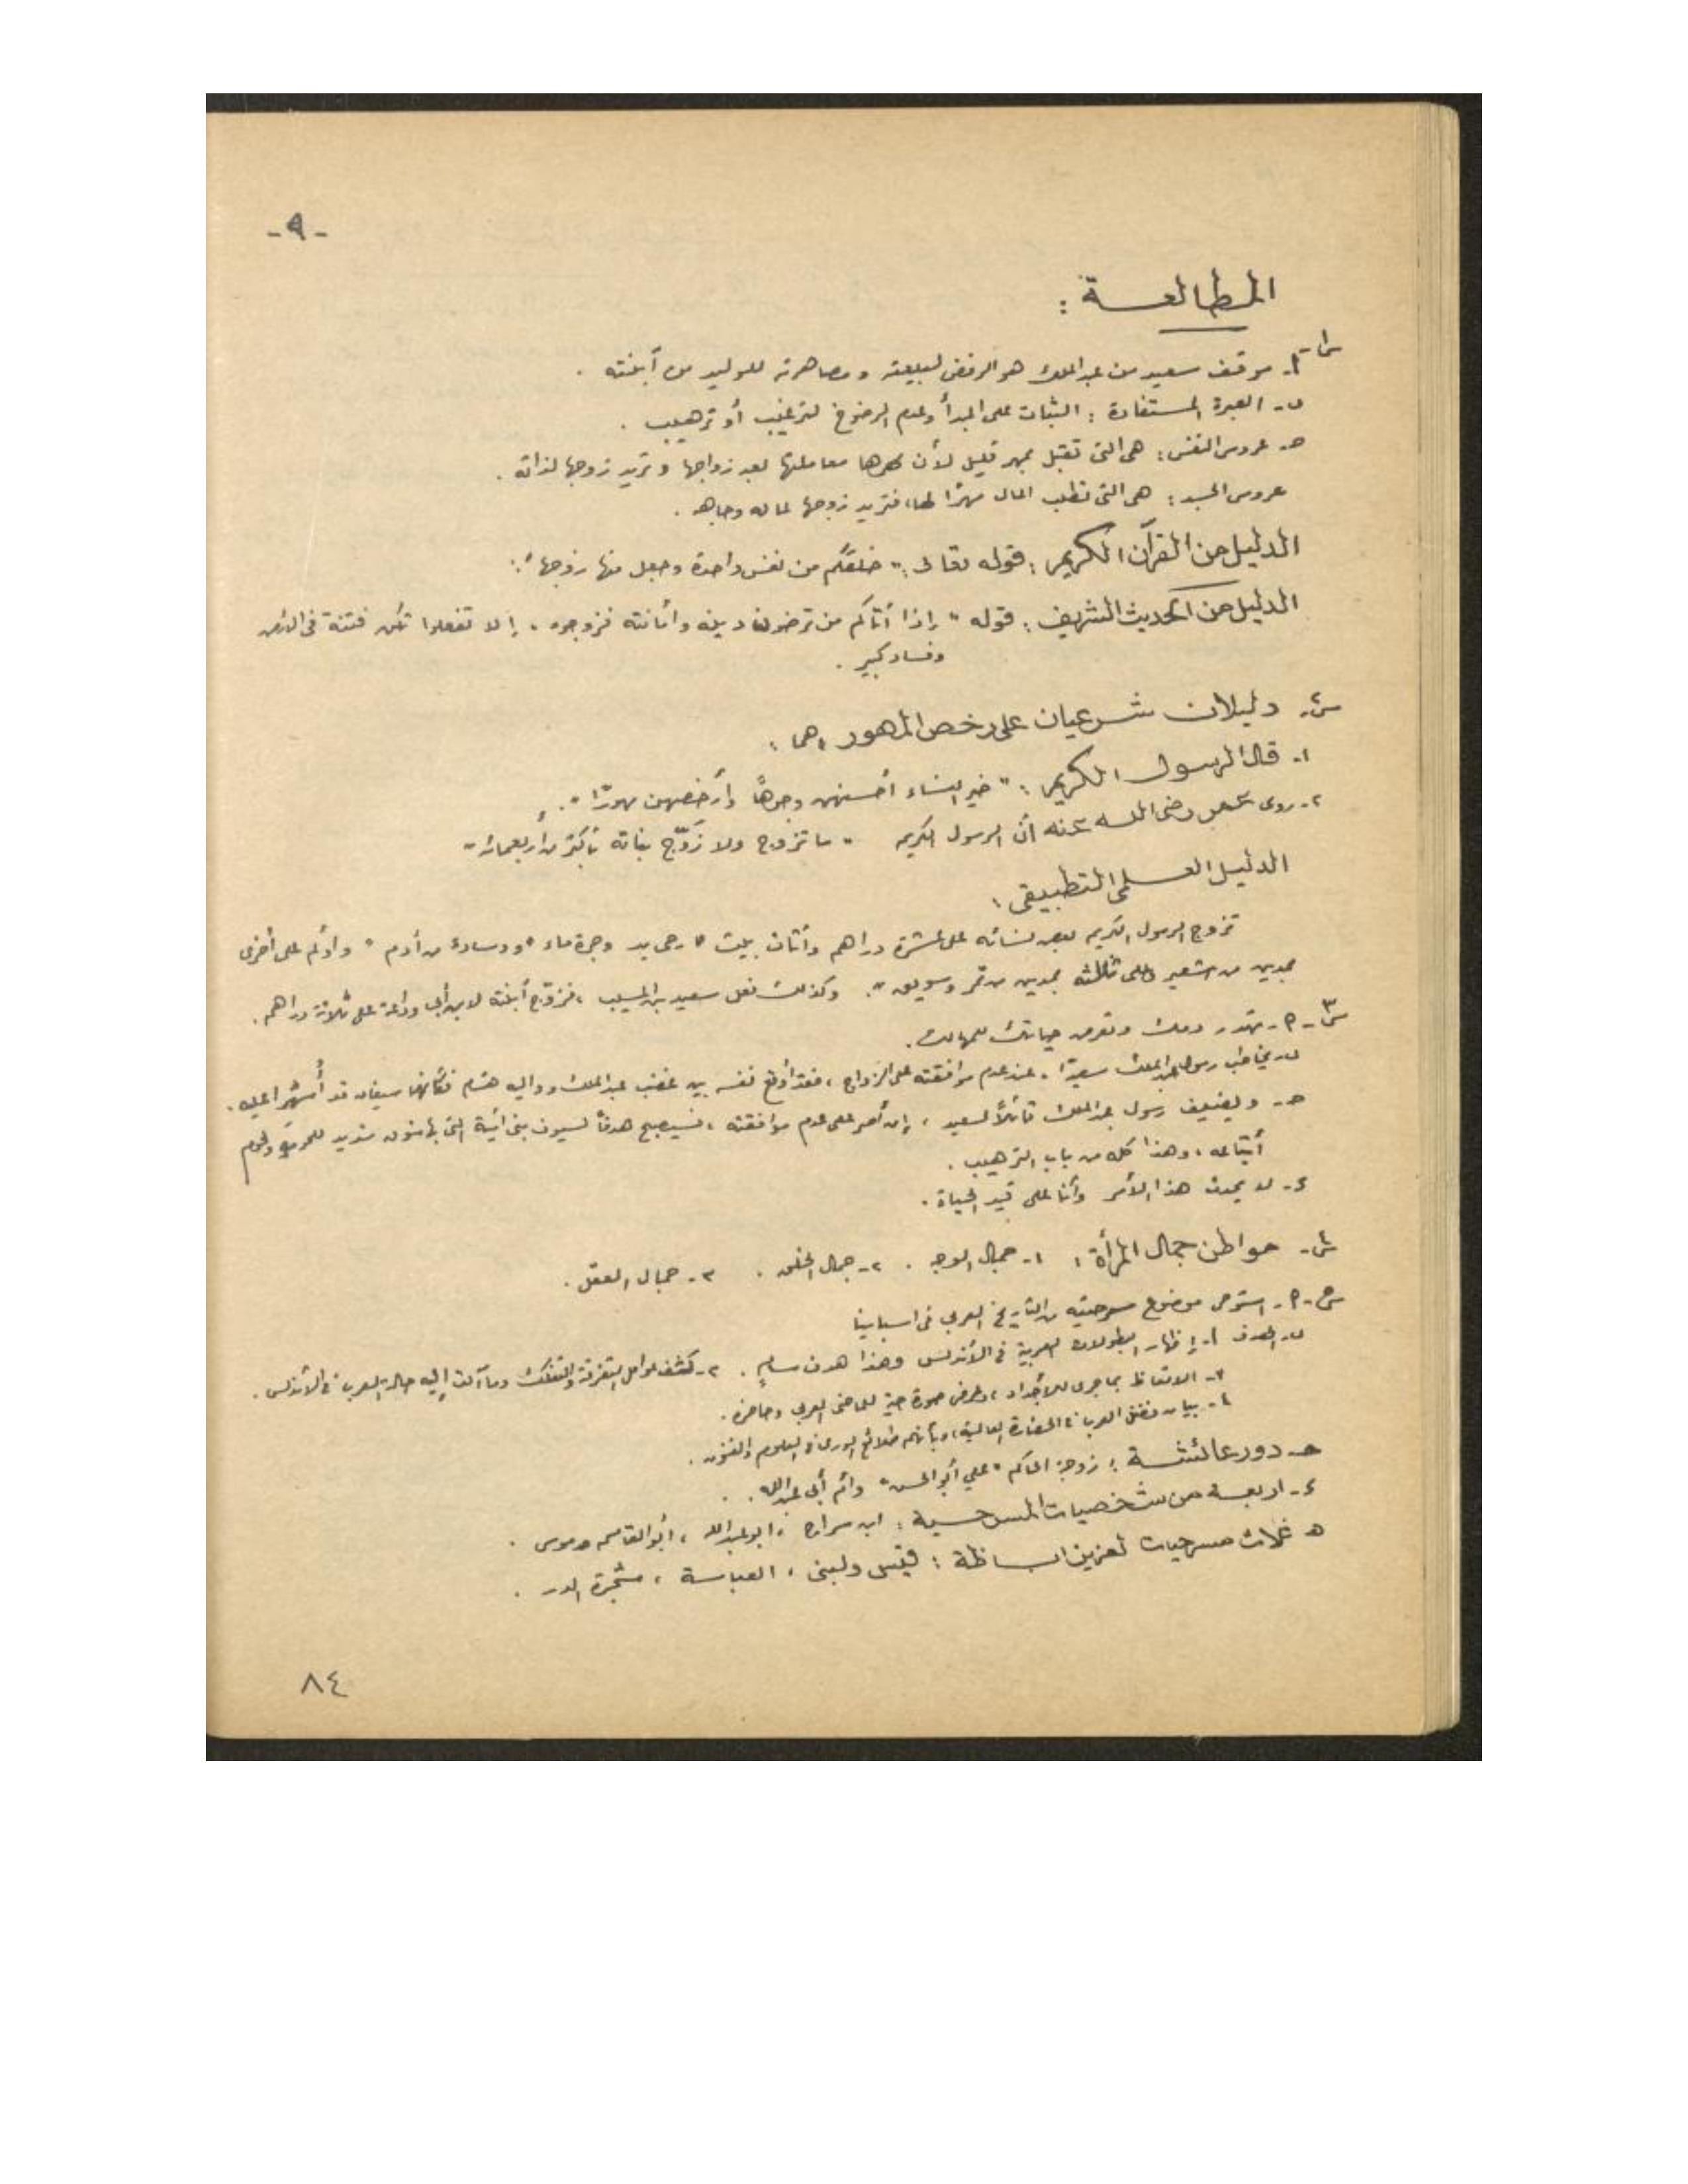 - ٩ -
المطالعة :
س١- أ- موقف سعيد من عبد الملك هو الرفض لبيعته ومصاهرته للوليد من أبنته .
ب- العبرة المستفادة : الثبات على المبدأ وعدم الرضوخ لترغيب أو ترهيب .
جـ- عروس النفس : هي التي تقبل بمهر قليل لأن مهرها معاملتها بعد زواجها وتريد زوجها لذاته .
عروس الجسد : هي التي تطلب المال مهرًا لها، فتريد زوجها لماله وجاهه .
الدليل من القرآن الكريم : قوله تعالى : " خلقكم من نفس واحدة وجعل منها زوجها " .
الدليل من الحديث الشريف : قوله " إذا أتاكم من ترضون دينه وأمانته فزوجوه ، إلا تفعلوا تكن فتنة في الأرض
وفساد كبير .
س٢- دليلان شرعيان على رخص المهور هما :
١- قال الرسول الكريم : " خير النساء أحسنهن وجوهًا وأرخصهن مهورًا " .
٢- روى عمر رضي الله عنه أن الرسول الكريم " ما تزوج ولا زوّج بناته بأكثر من أربعمائة "
الدليل العملي التطبيقي :
تزوج الرسول الكريم بعض نسائه على عشرة دراهم وأثاث بيت " رحى يد وجرة ماء " ووسادة من أدم " وأولم على أخرى
بمدين من شعير وعلى ثالثة بمدين من تمر وسويق " . وكذلك فعل سعيد بن المسيب ، فزوّج أبنته لابن أبي وداعة على ثلاثة دراهم .
س٣- أ- تهدر دمك وتعرض حياتك للمهالك .
ب- يخاطب رسول عبد الملك سعيدًا ، عند عدم موافقته على الزواج ، فقد أوقع نفسه بين غضب عبد الملك وواليه هشام فكأنهما سيفان قد أُشهرا عليه .
جـ- ويضيف رسول عبد الملك قائلاً لسعيد ، إن أصر على عدم موافقته ، فسيصبح هدفًا لسيوف بني أمية التي
أتباعه ، وهذا كله من باب الترهيب .
د- لا يحدث هذا الأمر وأنا على قيد الحياة .
س٤- مواطن جمال المرأة : ١- جمال الوجه . ٢- جمال الخلق . ٣- جمال العقل .
س٥- أ- استوحى موضوع مسرحيته من التاريخ العربي في اسبانيا
ب- الهدف ١- إظهار البطولات العربية في الأندلس وهذا هدف سامٍ . ٢- كشف عوامل التفرقة والتفكك وما آلت إليه حالة العرب في الأندلس .
٣- الاتعاظ بما جرى للأجداد ، وعرض صورة حية للماضي العربي وحاضره .
٤- بيان فضل العرب في الحضارة العالمية، وبأنهم طلائع الورى في العلوم والفنون .
جـ- دور عائشة : زوجة الحاكم " علي أبو الحسن " وأم أبي عبد الله .
د- اربعة من شخصيات المسرحية : ابن سراج ، ابو عبد الله ، أبو القاسم وموسى .
هـ ثلاث مسرحيات لعزيز اباظة : قيس ولبنى ، العباسة ، شجرة الدر .
٨٤